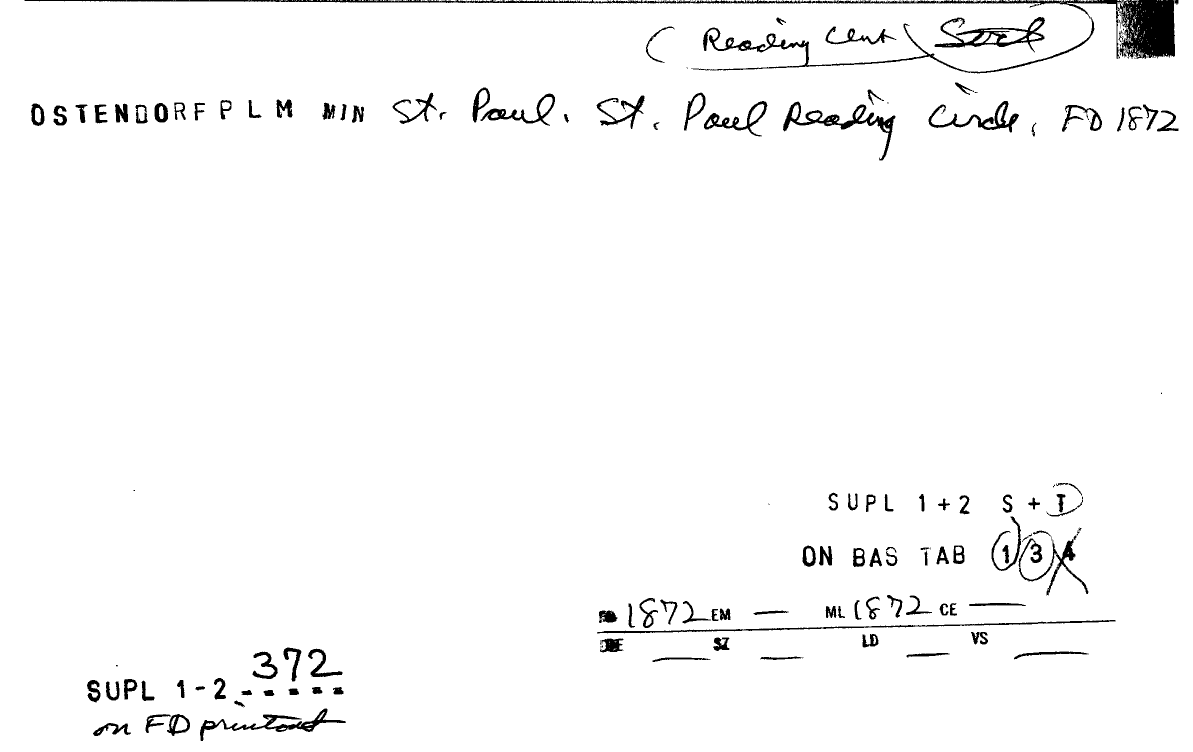 (Reading Cent
OSTENDORF P L M MIN St. Paul. St. Paul Reading Circle, FD 1872
SUPL 1+2 S + T
ON BAS TAB 1 3 4
1872 EM — ML 1872 CE —
SZ LD VS
372
SUPL 1-2
on FD printout